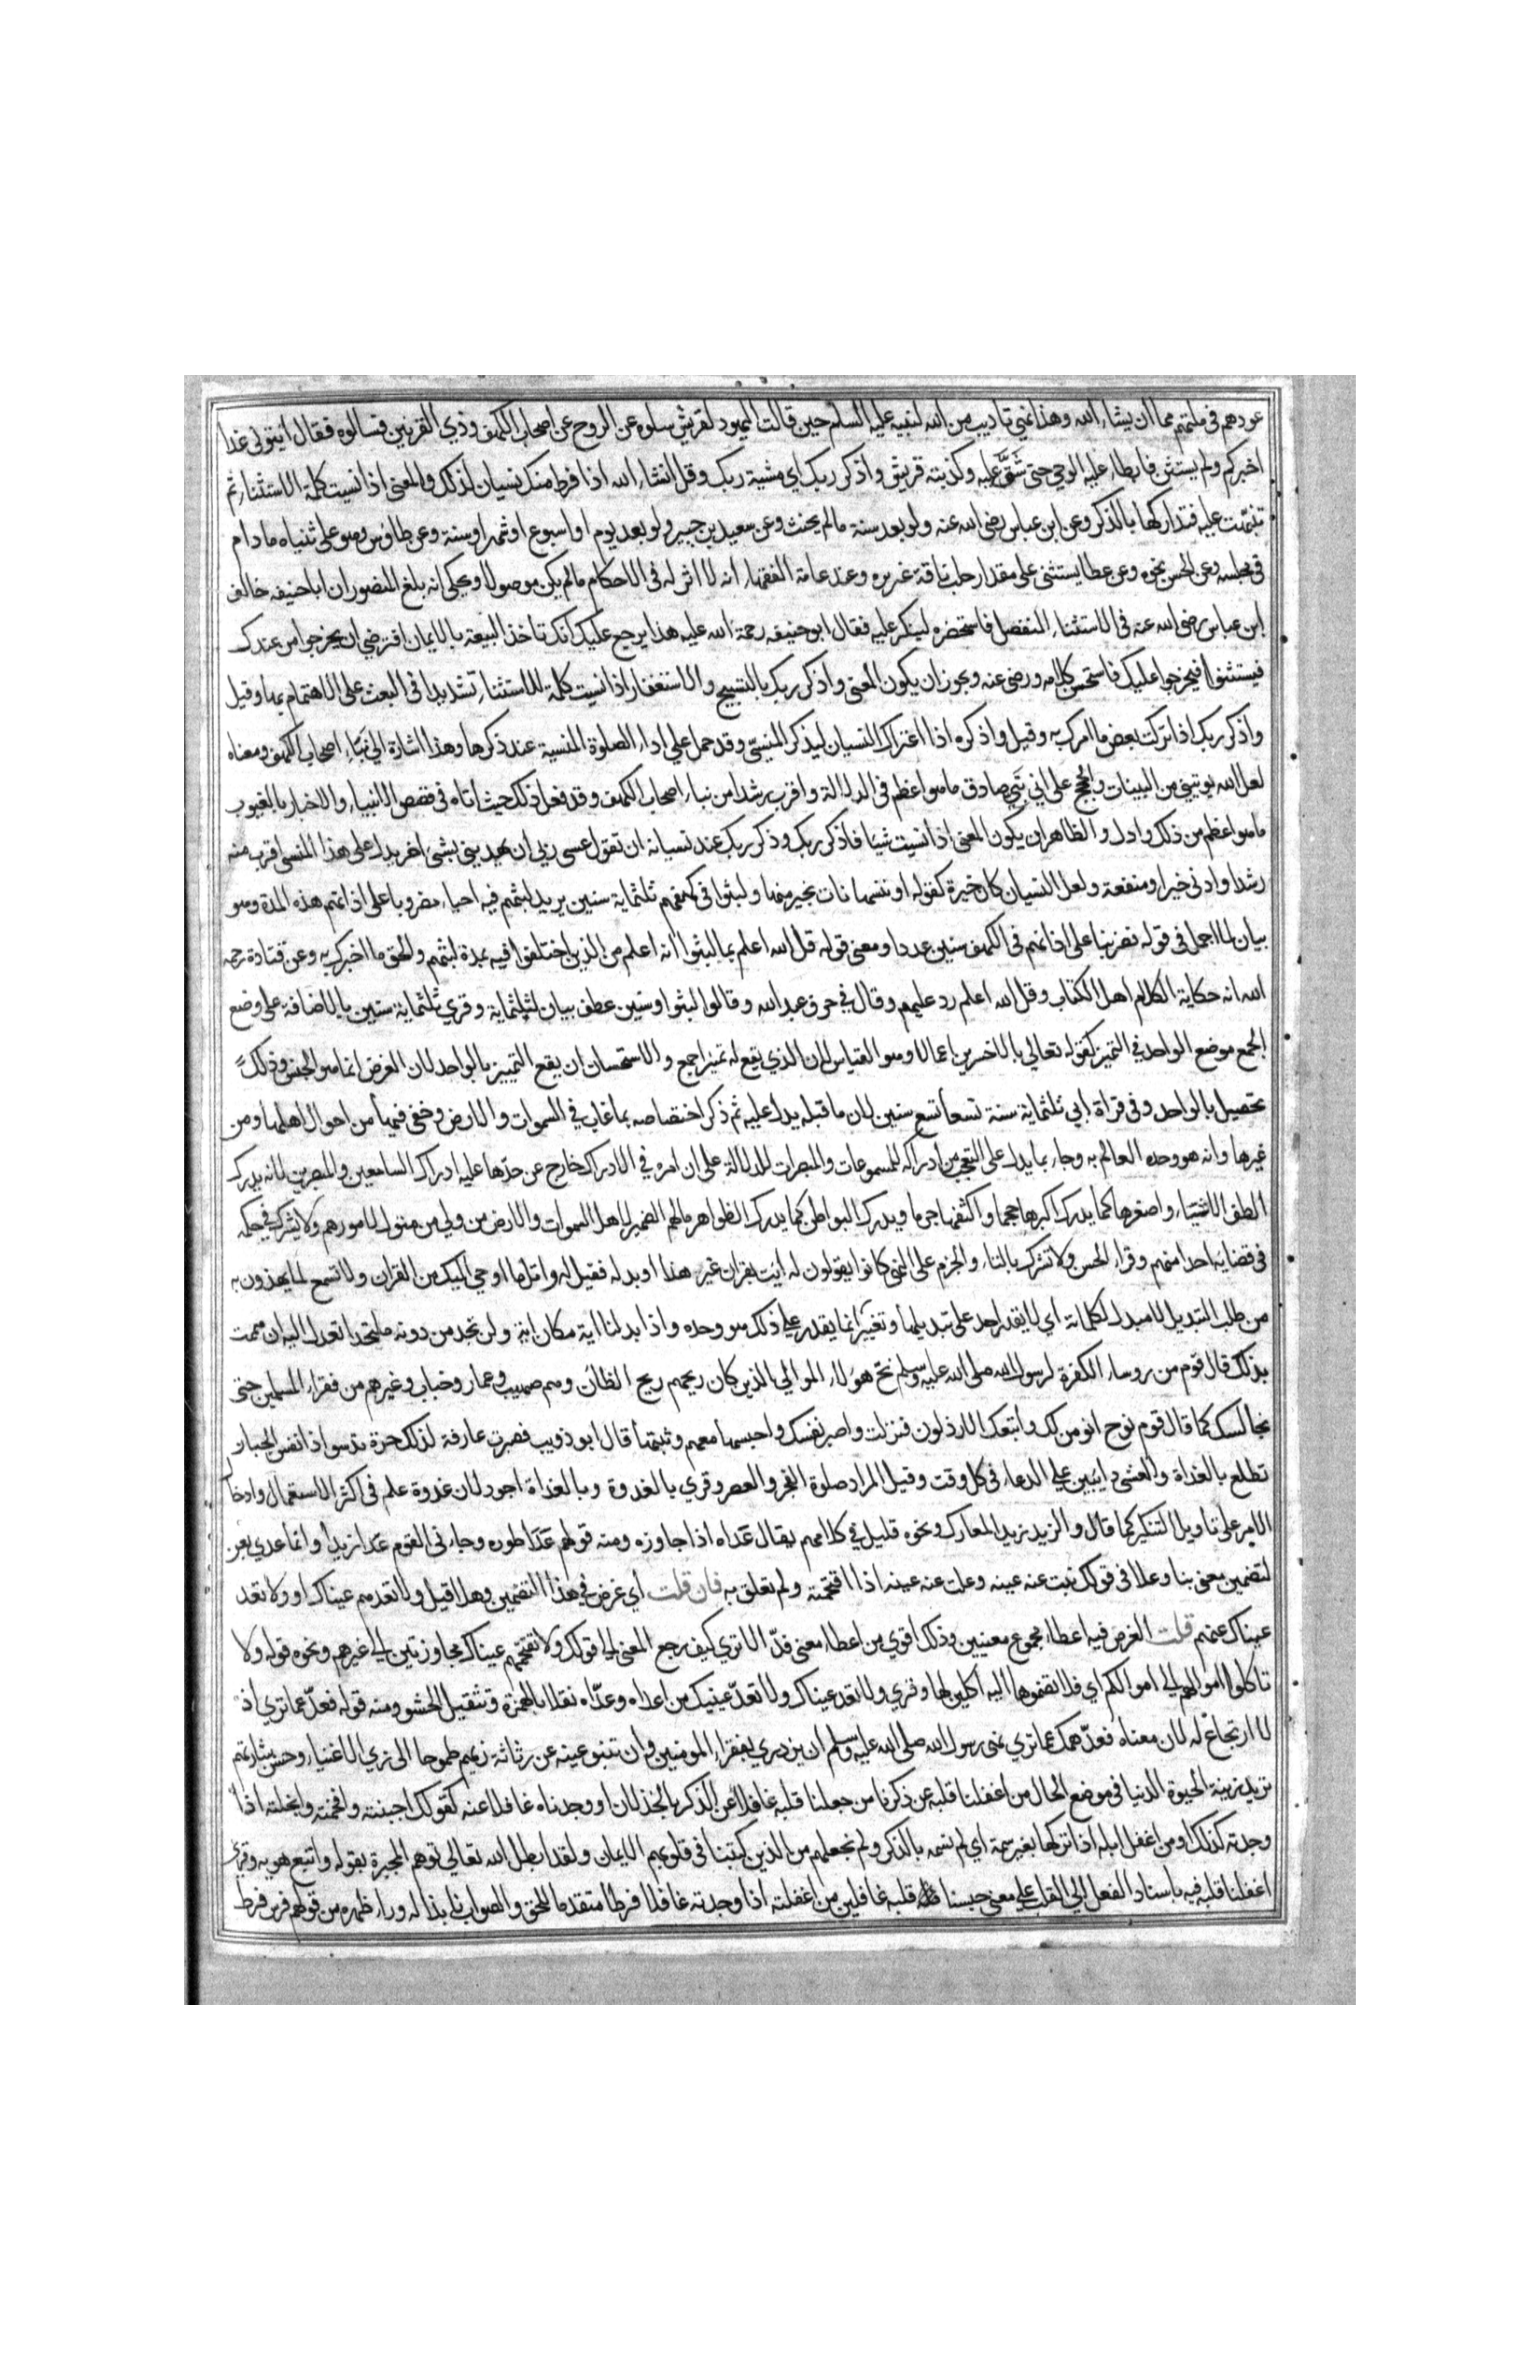 عودهم فى ملتهم مما ان يشاء الله وهذا نهى تاديب من الله لنبيه عليه السلم حين قالت اليهود لقريش سلوه عن الروح عن اصحاب الكهف وذي القرنين فسالوه فقال ايتونى غدا
اخبركم ولم يستثن فابطاء عليه الوحي حتى شق عليه وكذبته قريش واذكر ربك اي مشية ربك وقل انشاء الله اذا فرط منك نسيان لذلك والمعنى اذا نسيت كلمة الاستثناء ثم
تنبهت عليه فتداركها بالذكر وعن ابن عباس رضى الله عنه ولو بعد سنة مالم يحنث وعن سعيد بن جبير ولو بعد يوم او اسبوع او شهر او سنة وعن طاوس وهو على ثنياه ما دام
فى مجلسه وعن الحسن نحوه وعن عطا يستثنى على مقدار حلب ناقة غزيره وعند عامة الفقهاء انه لا اثر له فى الاحكام مالم يكن موصولا ويحكى انه بلغ المنصور ان ابا حنيفه خالف
ابن عباس رضى الله عنه فى الاستثناء المنفصل فاستحضره لينكر عليه فقال ابو حنيفه رحمة الله عليه هذا يرجع عليك انك تاخذ البيعة بالايمان افترضي ان يخرجوا من عندك
فيستثنوا فيخرجوا عليك فاستحسن كلامه ورضى عنه ويجوز ان يكون المعنى واذكر ربك بالتسبيح والاستغفار اذا نسيت كلمة للاستثناء تشديدا فى البعث على الاهتمام بها وقيل
واذكر ربك اذا تركت بعض ما امرك به وقيل واذكره اذا اعتراك النسيان ليذكر المنسى وقد حمل علي اداء الصلوة المنسية عند ذكرها وهذا اشارة الي نباء اصحاب الكهف ومعناه
لعل الله يوتيني من البينات والحجج على اني نبي صادق ما هو اعظم فى الدلالة واقرب رشدا من نباء اصحاب الكهف وقد فعل ذلك حيث اتاه فى قصص الانبياء والاخبار بالغيوب
ما هو اعظم من ذلك وادل والظاهر ان يكون المعنى اذا نسيت شيا فاذكر ربك وذكر ربك عند نسيانه ان تقول عسى ربي ان يهديني بشئ اخر بدل على هذا المنسى اقرب منه
رشدا وادنى خيرا ومنفعة ولعل النسيان كان خيرة كقوله او ننسها نات بخير منها ولبثوا فى كهفهم ثلثماية سنين يريد لبثهم فيه احياء مضروبا على اذانهم هذه المدة وهو
بيان لما اجمل فى قوله فضربنا على اذانهم فى الكهف سنين عددا ومعنى قوله قل الله اعلم بما لبثوا انه اعلم من الذين اختلفوا فيه بمدة لبثهم والحق ما اخبرك به وعن قتادة رحمه
الله انه حكاية الكلام اهل الكتاب وقل الله اعلم رد عليهم وقال في حرف عبد الله وقالوا لبثوا وسنين عطف بيان لثلثماية وقري ثلثماية سنين بالاضافة على وضع
الجمع موضع الواحد في التميز كقوله تعالي بالاخسرين اعمالا وهو القياس لان الذي يقع له تميز اجمع والاستحسان ان يقع التمييز بالواحد لان الغرض انما هو الجنس وذلك
تحصيل بالواحد وفى قراة ابي ثلثماية سنة تسعا تسع سنين لان ما قبله يدل عليه ثم ذكر اختصاصه بما غاب في السموات والارض وخفى فيها من احوال اهلها ومن
غيرها وانه هو وحده العالم به وجاء بما يدل على التعجب من ادراكه للمسموعات والمبصرات للدلالة على ان امره في الادراك خارج عن حد ما عليه ادراك السامعين والمبصرين لانه يدرك
الطف الاشياء واصغرها كما يدرك اكبرها حجما واكثفها جرما ويدرك البواطن كما يدرك الظواهر مالهم الضمير لاهل السموات والارض من ولي من متول لامورهم ولا يشرك في حكمه
فى قضايه احدا منهم وقراء الحسن ولا تشرك بالتاء والجزم على النهى كانوا يقولون له ايت بقران غير هذا او بدله فقيل له واتل ما اوحي اليك من القران ولا تسمع لما يهذون به
من طلب التبديل لا مبدل لكلماته اي لا يقدر احد على تبديلها وتغييرها انما يقدر علي ذلك هو وحده واذا بدلنا اية مكان اية ولن تجد من دونه ملتحدا تعدل اليه ان هممت
بذلك قال قوم من روساء الكفرة لرسول الله صلى الله عليه وسلم نح هولاء الموالي الذين كان ريحهم ريح الظان وهم صهيب وعمار وخباب وغيرهم من فقراء المسلمين حتى
نجالسك كما قال قوم نوح انومن لك واتبعك الارذلون فنزلت واصبر نفسك واحبسها معهم وثبتها قال ابو ذويب فصبرت عارفة لذلك حرة ترسو اذا نفس الجبار
تطلع بالغداة والعشى دايبين علي الدعاء فى كل وقت وقيل المراد صلوة الفجر والعصر وقري بالغدوة وبالغداة اجود لان غدوة علم فى اكثر الاستعمال وادخال
اللام على تاويل التنكير كما قال والزيد زيد المعارك ونحوه قليل في كلامهم يقال عداه اذا جاوزه ومنه قولهم عدا طوره وجاءنى القوم عدا زيدا وانما عدي بعن
لتضمين معنى نبا وعلا فى قولك نبت عنه عينه وعلت عنه عينه اذا اقتحمته ولم تعلق به فان قلت اي غرض في هذا التضمين وهلا قيل ولا تعدهم عيناك او ولا تعد
عيناك عنهم قلت الغرض فيه اعطاء مجموع معنيين وذلك اقوي من اعطاء معنى فذ الا تري كيف رجع المعنى الي قولك ولا تقتحمهم عيناك مجاوزتين الي غيرهم ونحوه قوله ولا
تاكلوا اموالهم الي اموالكم اي فلا تضموها اليه اكلين لها وقري ولا تعد عيناك ولا تعد عينيك من اعداه وعداه نقلا بالهمزة وتثقيل الحشو ومنه قوله فعد عما تري اذ
لا ارتجاع له لان معناه فعد همك عما تري نهى رسول الله صلى الله عليه وسلم ان يزدري بفقراء المومنين وان تنبو عينه عن رثاثة زيهم طموحا الى زي الاغنياء وحسن شارتهم
تريد زينة الحيوة الدنيا فى موضع الحال من اغفلنا قلبه عن ذكرنا من جعلنا قلبه غافلا عن الذكر بالخذلان او وجدناه غافلا عنه كقولك اجبنته وافحمته وابخلته اذا
وجدته كذلك او من اغفل ابله اذا تركها بغير سمة اي لم نسمه بالذكر ولم نجعلهم من الذين كتبنا فى قلوبهم الايمان ولقد ابطل الله تعالي توهم المجبرة بقوله واتبع هويه وقرئ
اغفلنا قلبه فيه باسناد الفعل الي القلب علي معنى حسبنا قلبه غافلين من اغفلته اذا وجدته غافلا فرطا متقدما للحق والصواب نابذا له وراء ظهره من قولهم فرس فرط